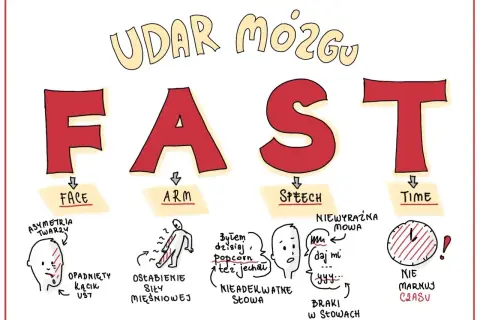 UDAR MÓZGU
FAST
FACE
ARM
SPEECH
TIME
ASYMETRIA
TWARZY
OPADNIĘTY
KĄCIK
UST
OSŁABIENIE
SIŁY
MIĘŚNIOWEJ
Byłem
dzisiaj
popcorn
też jechali
NIEADEKWATNE
SŁOWA
NIEWYRAŹNA
MOWA
daj mi
... yyy...
BRAKI
W SŁOWACH
!
NIE
MARNUJ
CZASU